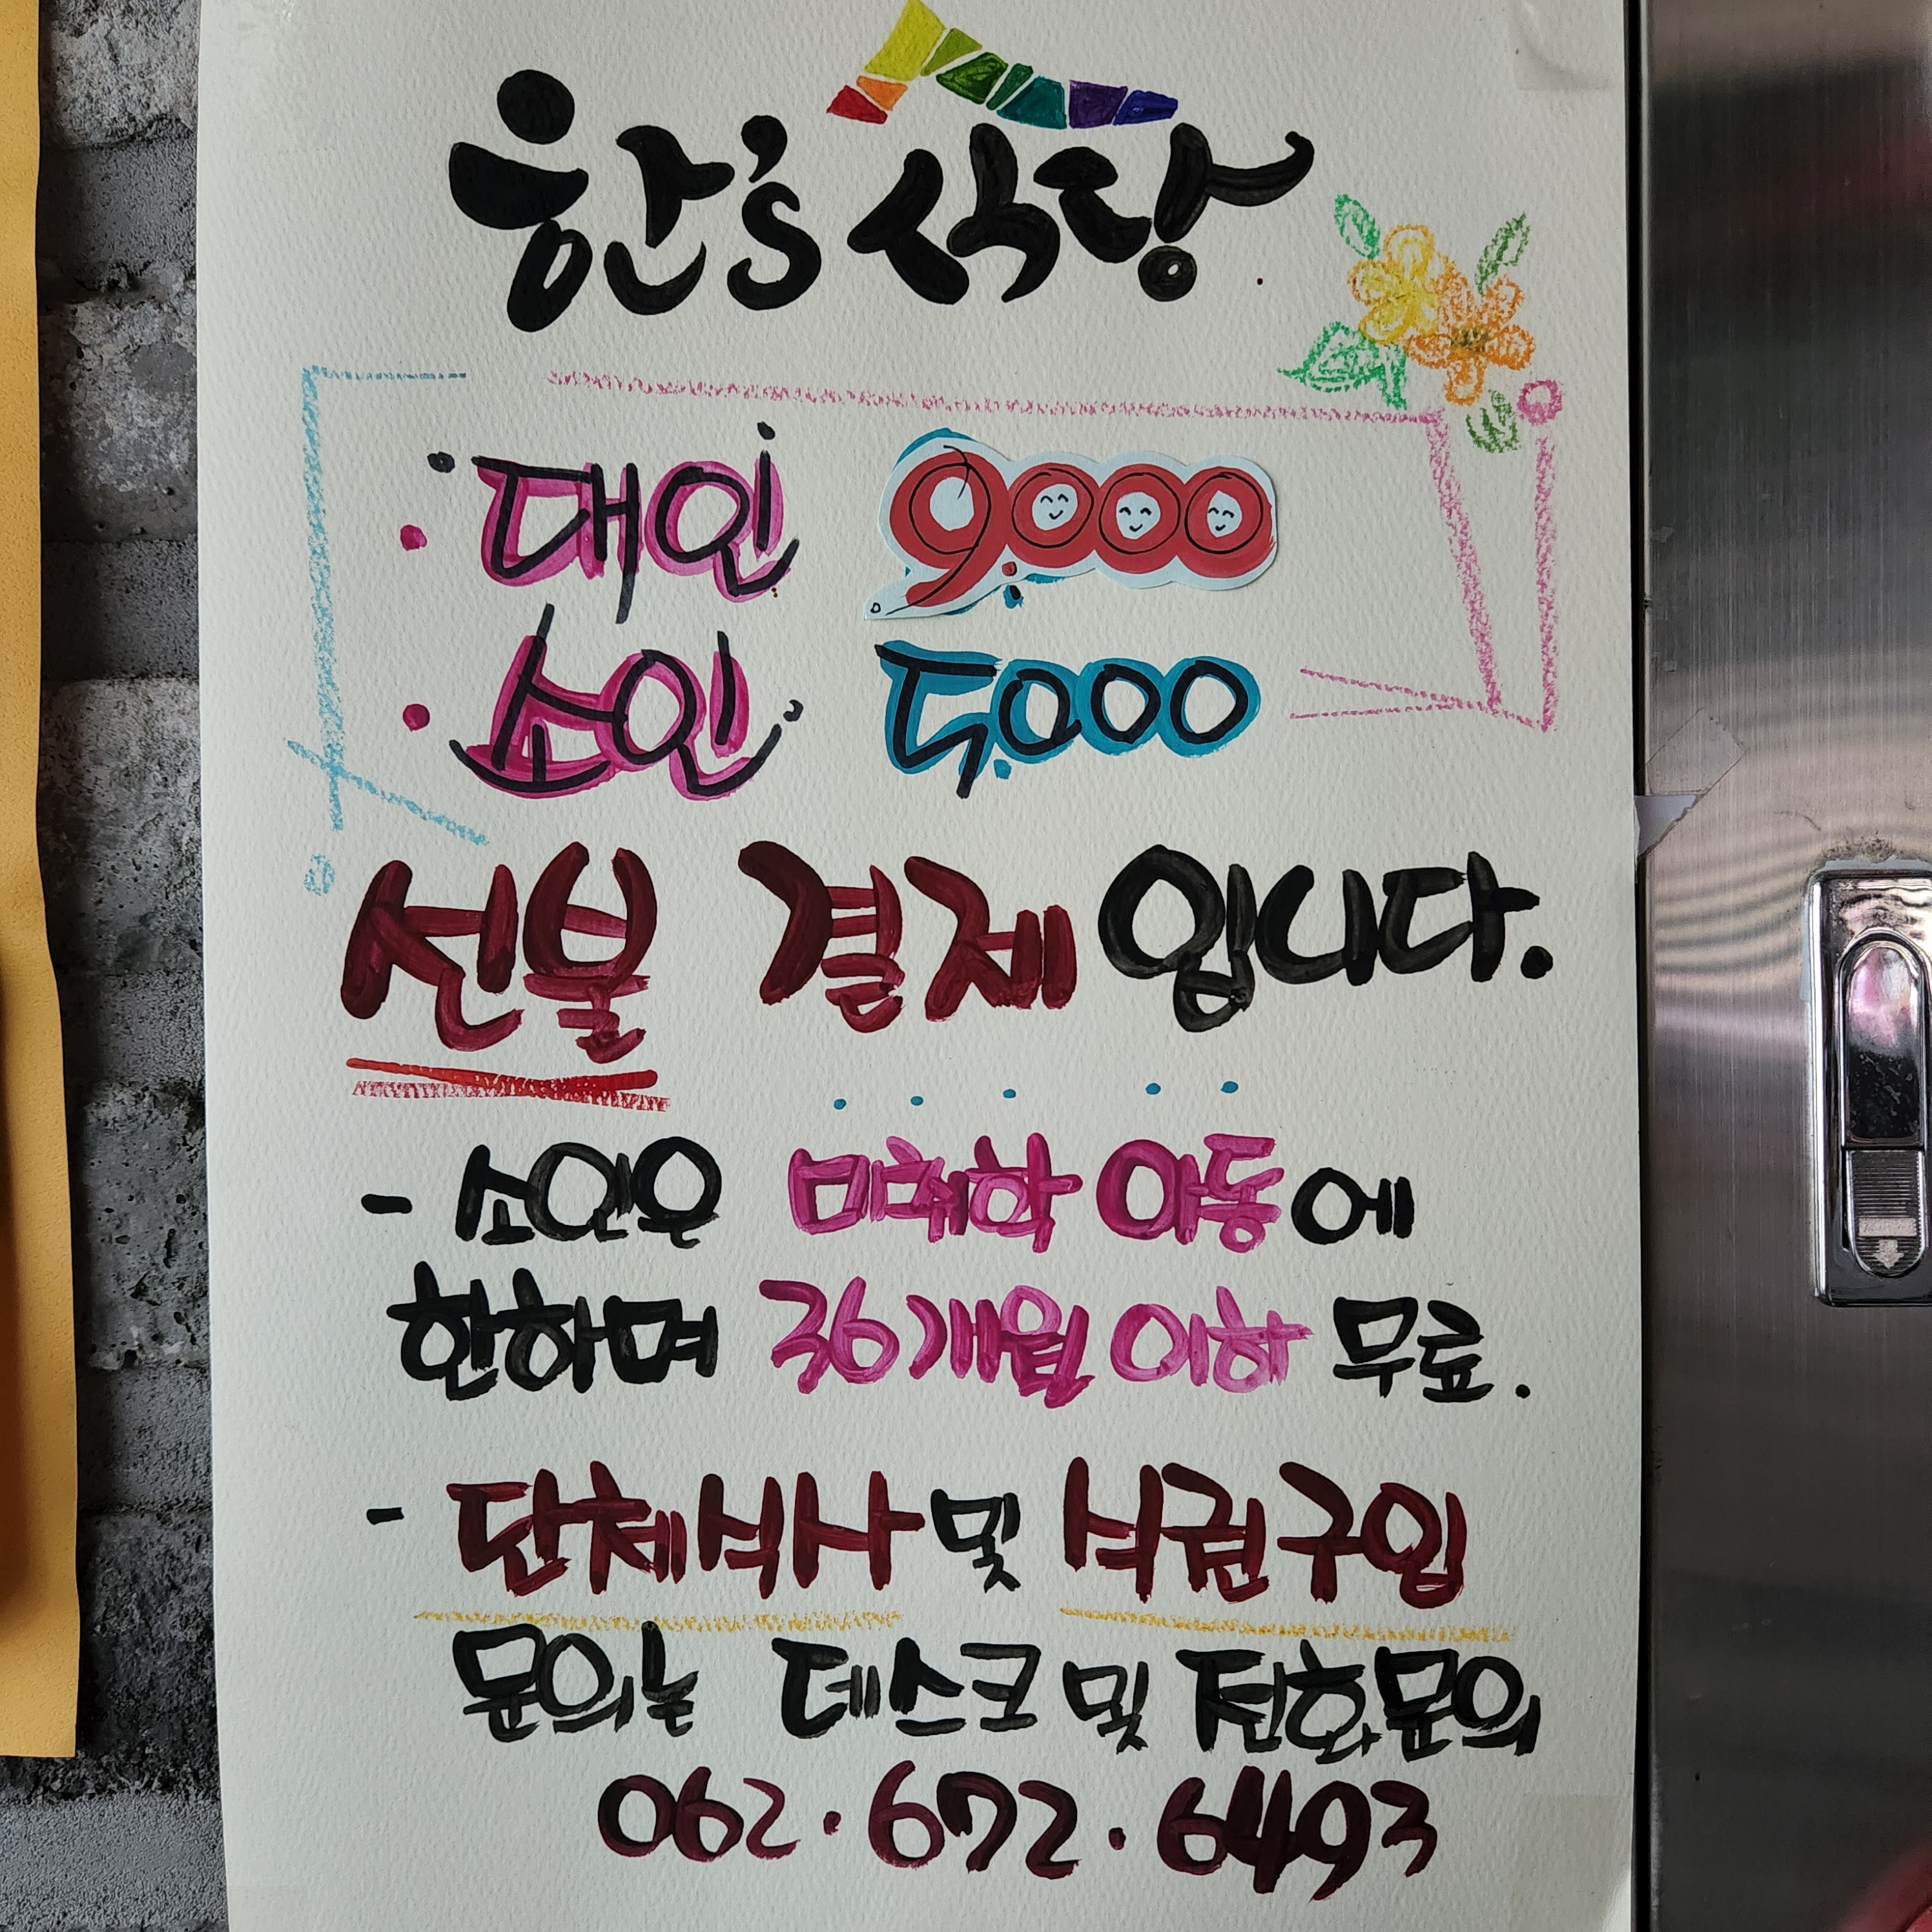 한's 식당
대인 9,000
소인 5,000
선불 결제 입니다.
- 소인은 미취학 아동에
한하며 36개월 이하 무료.
- 단체식사 및 식권구입
문의는 데스크 및 전화문의
062·672·6493